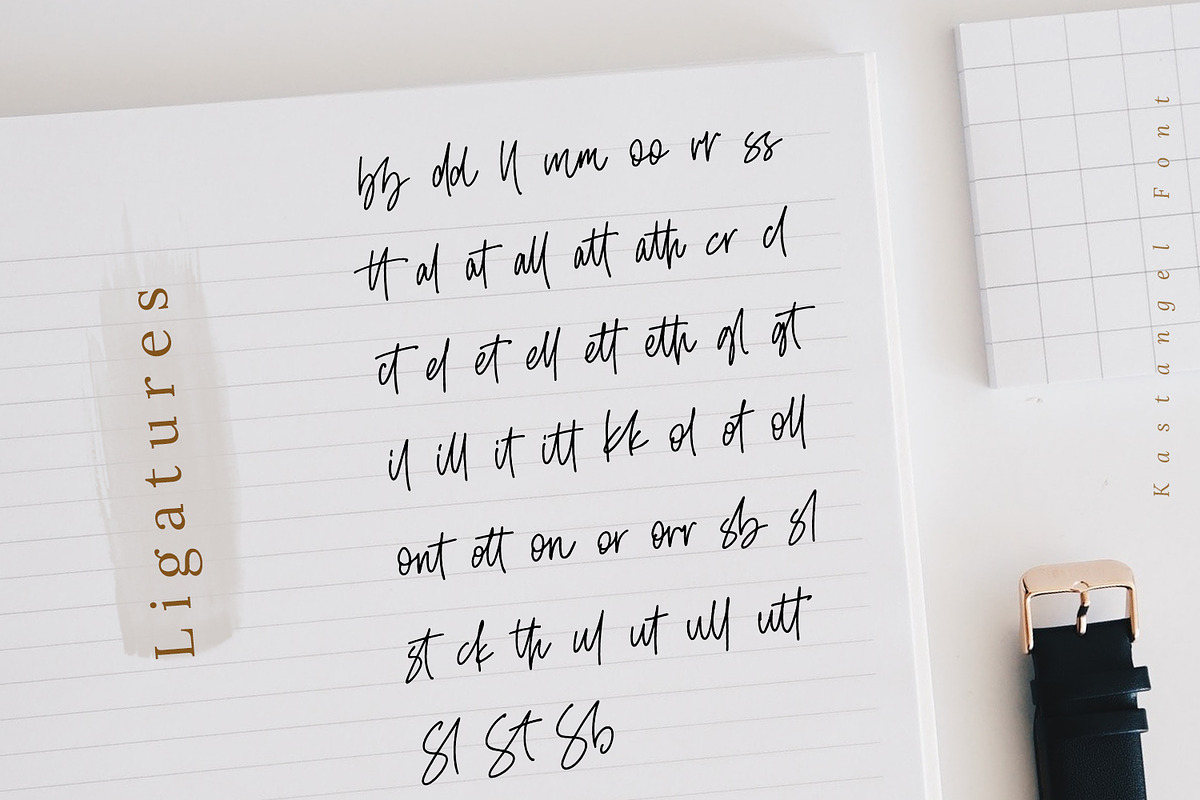 Ligatures
bb dd ll mm oo rr ss
tt al at all att ath cr cl
ct el et ell ett eth gl gt
il ill it itt kk ol ot oll
ont ott on or orr sb sl
st ck th ul ut ull utt
Sl St Sb
Kasstangel Font